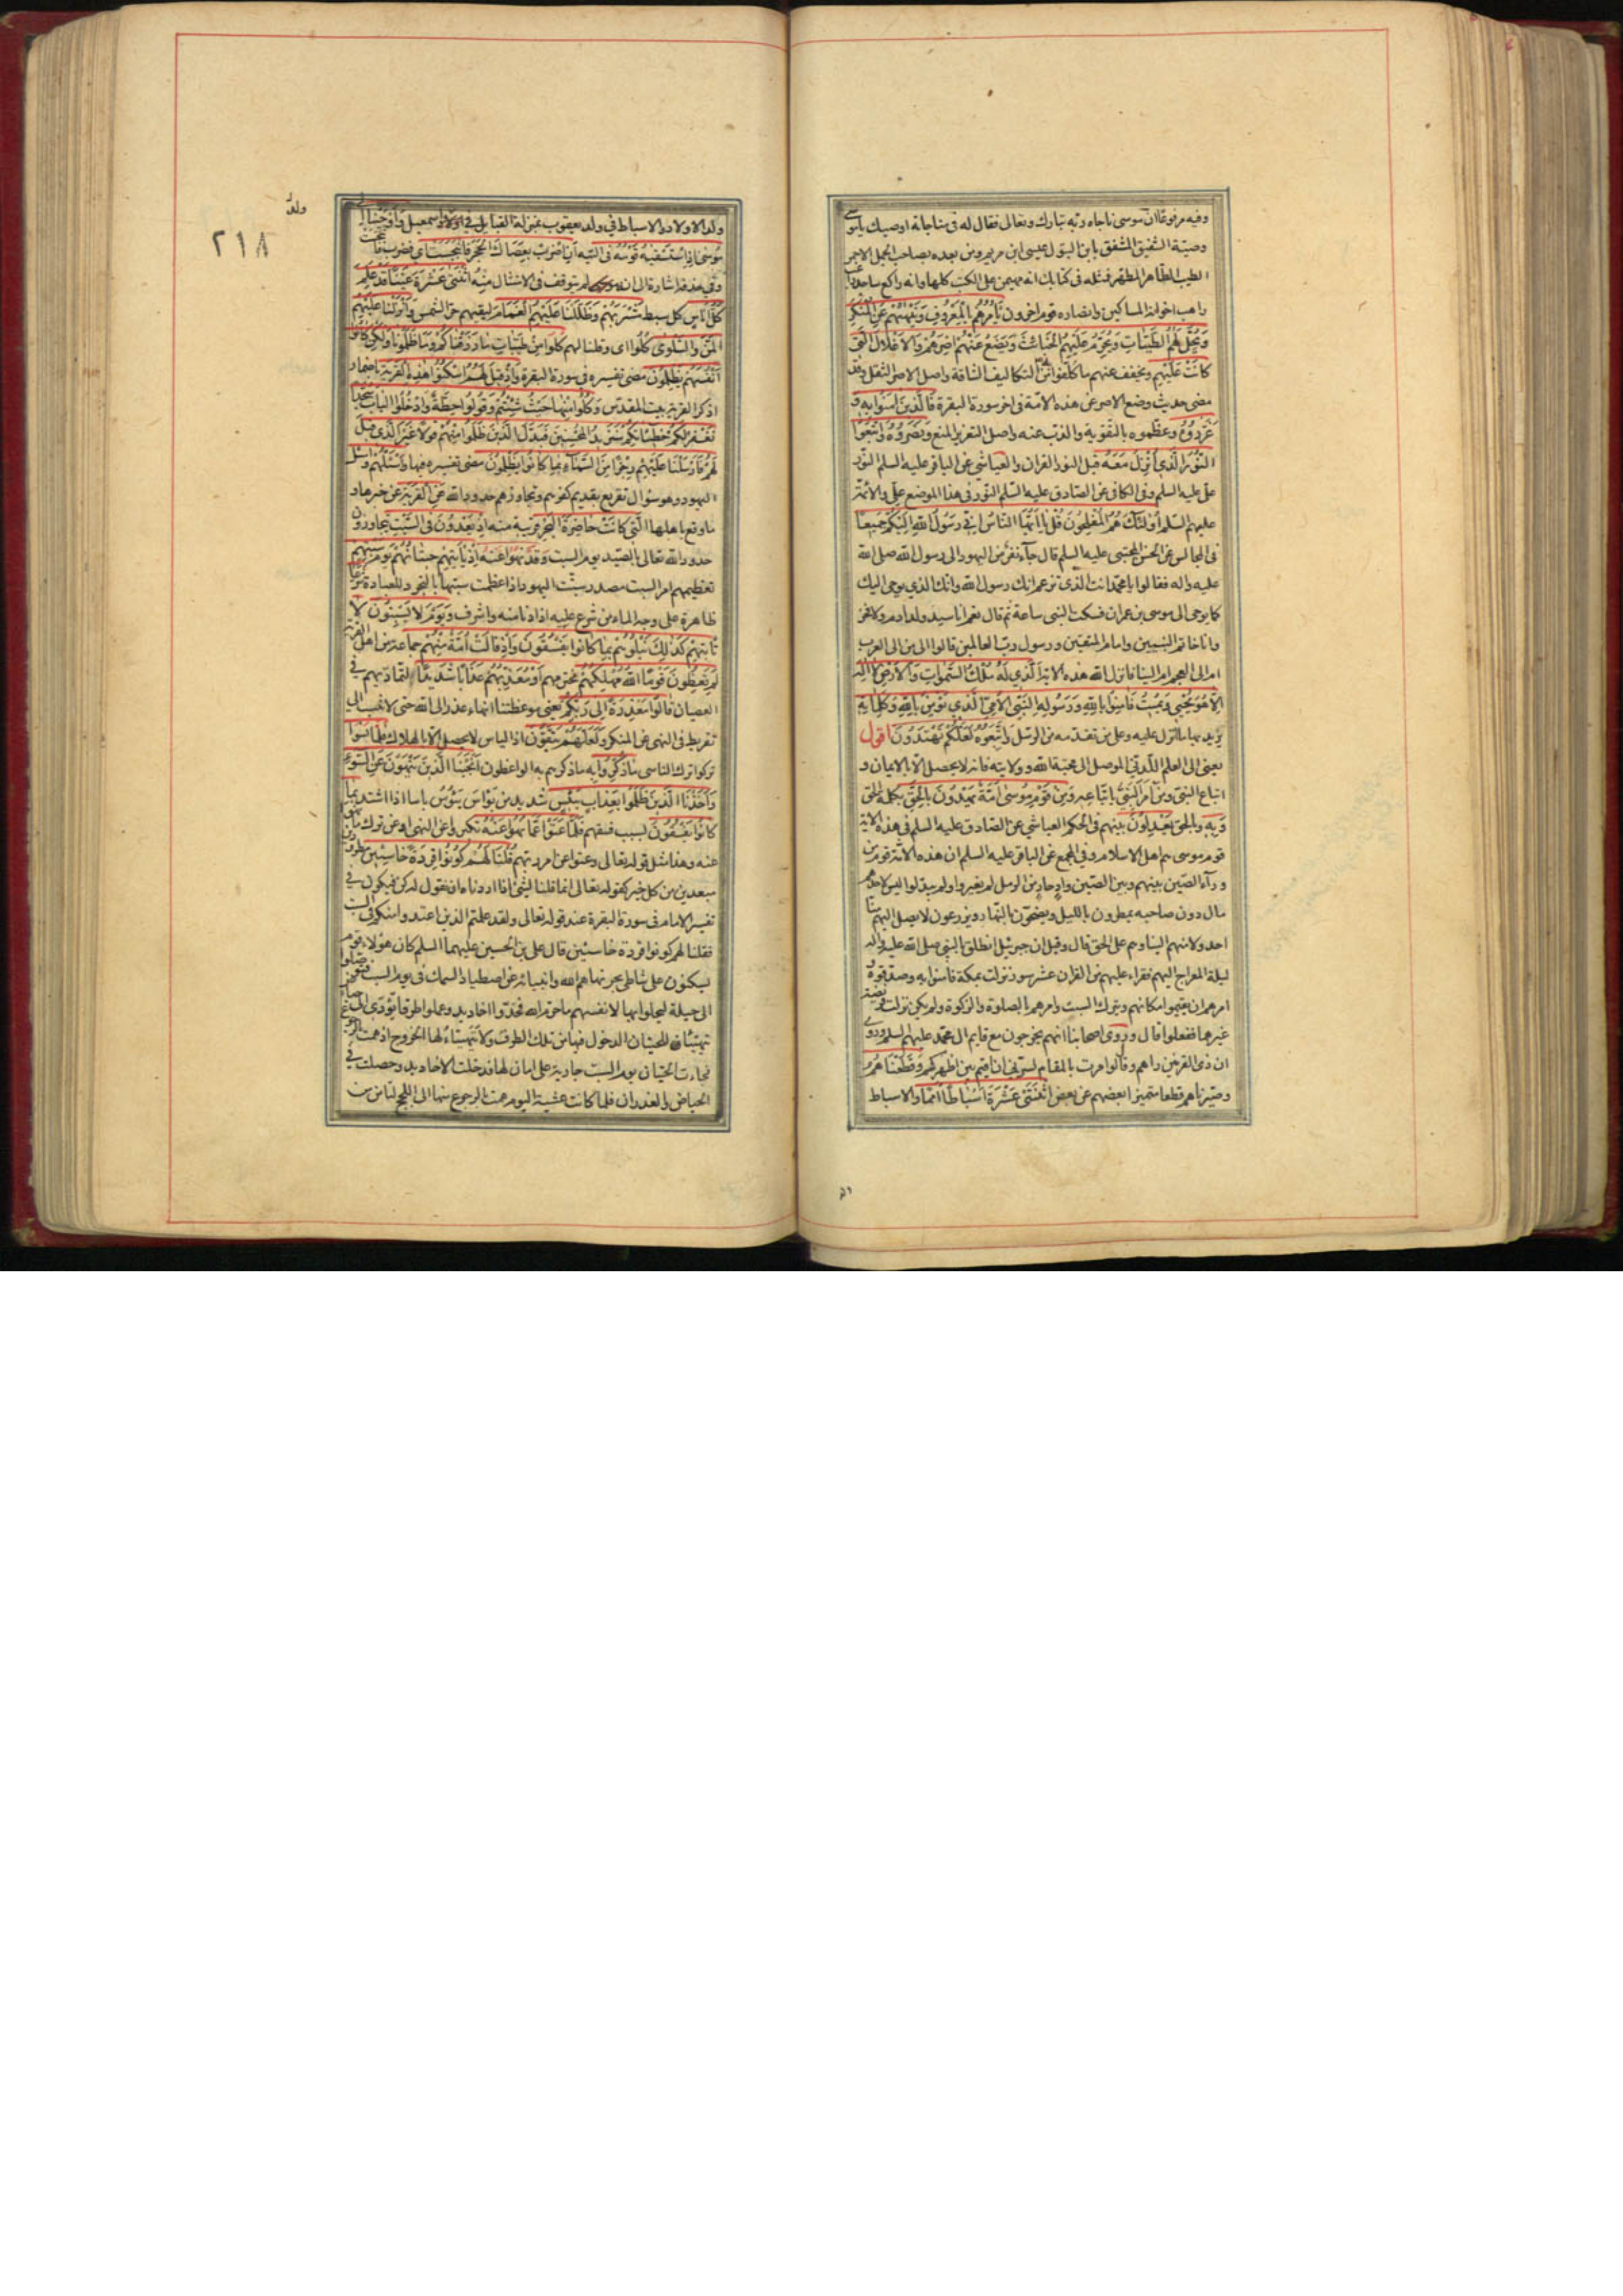 وفيه مرفوعا ان موسى ناجاه ربه تبارك وتعالى فقال له في مناجاته اوصيك يا موسى
وصية الشفيق المشفق بابن البتول عيسى ابن مريم ومن بعده بصاحب الجمل الاحمر
الطيب الطاهر المطهر فمثله في كتابك انه مهيمن على الكتب كلها وانه راكع ساجد راغب
راهب اخوانه المساكين وانصاره قوم اخرون يَأْمُرُهُمْ بِالْمَعْرُوفِ وَيَنْهٰيهُمْ عَنِ الْمُنْكَرِ
وَيُحِلُّ لَهُمُ الطَّيِّبَاتِ وَيُحَرِّمُ عَلَيْهِمُ الْخَبَائِثَ وَيَضَعُ عَنْهُمْ اِصْرَهُمْ وَالْاَغْلَالَ الَّتِي
كَانَتْ عَلَيْهِمْ ويخفف عنهم ما كلفوا من التكاليف الشاقة واصل الاصر الثقل وقد
مضى حديث وضع الاصر عن هذه الامة في اخر سورة البقرة فَالَّذِينَ اٰمَنُوا بِهِ وَ
عَزَّرُوهُ وعظموه بالتقوية والذب عنه واصل التعزير المنع وَنَصَرُوهُ وَاتَّبَعُوا
النُّورَ الَّذِي اُنْزِلَ مَعَهُ قيل النور القران والعياشي عن الباقر عليه السلم النور
علي عليه السلم وفي الكافي عن الصادق عليه السلم النور في هذا الموضع علي والائمة
عليهم السلم اُولٰئِكَ هُمُ الْمُفْلِحُونَ قُلْ يَا اَيُّهَا النَّاسُ اِنِّي رَسُولُ اللهِ اِلَيْكُمْ جَمِيعًا
في المجالس عن الحسن المجتبى عليه السلم قال جاء نفر من اليهود الى رسول الله صلى الله
عليه واله فقالوا يا محمد انت الذي تزعم انك رسول الله وانك الذي يوحى اليك
كما يوحى الى موسى بن عمران فسكت النبي ساعة ثم قال نعم انا سيد ولد ادم ولا فخر
وانا خاتم النبيين وامام المتقين ورسول رب العالمين قالوا الى من الى العرب
ام الى العجم ام الينا فانزل الله هذه الاية اَلَّذِي لَهُ مُلْكُ السَّمٰوَاتِ وَالْاَرْضِ لَا اِلٰهَ
اِلَّا هُوَ يُحْيِي وَيُمِيتُ فَاٰمِنُوا بِاللهِ وَرَسُولِهِ النَّبِيِّ الْاُمِّيِّ الَّذِي يُؤْمِنُ بِاللهِ وَكَلِمَاتِهِ
يريد بها ما انزل عليه وعلى من تقدمه من الرسل وَاتَّبِعُوهُ لَعَلَّكُمْ تَهْتَدُونَ اقول
يعني الى العلم اللدني الموصل الى محبة الله وولايته فانه لا يحصل الا بالايمان و
اتباع النبي ومن امر النبي باتباعه وَمِنْ قَوْمِ مُوسٰى اُمَّةٌ يَهْدُونَ بِالْحَقِّ بكلمة الحق
وَبِهِ وبالحق يَعْدِلُونَ بينهم في الحكم العياشي عن الصادق عليه السلم في هذه الاية
قوم موسى هم اهل الاسلام وفي المجمع عن الباقر عليه السلم ان هذه الامة قوم من
وراء الصين بينهم وبين الصين واد جار من الرمل لم يغيروا ولم يبدلوا ليس لاحدهم
مال دون صاحبه يمطرون بالليل ويضحون بالنهار ويزرعون لا يصل اليهم منا
احد ولا منهم الينا وهم على الحق قال وقيل ان جبرئيل انطلق بالنبي صلى الله عليه واله
ليلة المعراج اليهم فقراء عليهم من القران عشر سور نزلت بمكة فامنوا به وصدقوه و
امرهم ان يقيموا مكانهم ويتركوا السبت وامرهم بالصلوة والزكوة ولم يكن نزلت فريضة
غيرهما ففعلوا قال وروى اصحابنا انهم يخرجون مع قايم ال محمد عليهم السلم وروي
ان ذي القرنين راهم وقال لو امرت بالمقام لسرني ان اقيم بين اظهركم وَقَطَّعْنَاهُمْ
وصيرناهم قطعا متميزا بعضهم عن بعض اثْنَتَيْ عَشْرَةَ اَسْبَاطًا اُمَمًا والاسباط
ولد
٢١٨
ولد الاولاد والاسباط في ولد يعقوب بمنزلة القبايل في اولاد اسمعيل وَاَوْحَيْنَا اِلٰى
مُوسٰى اِذِ اسْتَسْقٰيهُ قَوْمُهُ في التيه اَنِ اضْرِبْ بِعَصَاكَ الْحَجَرَ فَانْبَجَسَتْ اي فضرب فانبجست
وفي حذفه اشارة الى ان موسى لم يتوقف في الامتثال مِنْهُ اثْنَتَا عَشْرَةَ عَيْنًا قَدْ عَلِمَ
كُلُّ اُنَاسٍ كل سبط مَشْرَبَهُمْ وَظَلَّلْنَا عَلَيْهِمُ الْغَمَامَ ليقيهم حر الشمس وَاَنْزَلْنَا عَلَيْهِمُ
الْمَنَّ وَالسَّلْوٰى كُلُوا اي وقلنا لهم كلوا مِنْ طَيِّبَاتِ مَا رَزَقْنَاكُمْ وَمَا ظَلَمُونَا وَلٰكِنْ كَانُوا
اَنْفُسَهُمْ يَظْلِمُونَ مضى تفسيره في سورة البقرة وَاِذْ قِيلَ لَهُمُ اسْكُنُوا هٰذِهِ الْقَرْيَةَ باضمار
اذكر القرية بيت المقدس وَكُلُوا مِنْهَا حَيْثُ شِئْتُمْ وَقُولُوا حِطَّةٌ وَادْخُلُوا الْبَابَ سُجَّدًا
نَغْفِرْ لَكُمْ خَطِيئَاتِكُمْ سَنَزِيدُ الْمُحْسِنِينَ فَبَدَّلَ الَّذِينَ ظَلَمُوا مِنْهُمْ قَوْلًا غَيْرَ الَّذِي قِيلَ
لَهُمْ فَاَرْسَلْنَا عَلَيْهِمْ رِجْزًا مِنَ السَّمَاءِ بِمَا كَانُوا يَظْلِمُونَ مضى تفسيره فيها وَاسْئَلْهُمْ واسئل
اليهود وهو سؤال تقريع بقديم كفرهم وتجاوزهم حدود الله عَنِ الْقَرْيَةِ عن خبرها و
ما وقع باهلها الَّتِي كَانَتْ حَاضِرَةَ الْبَحْرِ قريبة منه اِذْ يَعْدُونَ فِي السَّبْتِ يتجاوزون
حدود الله تعالى بالصيد يوم السبت وقد نهوا عنه اِذْ تَأْتِيهِمْ حِيتَانُهُمْ يَوْمَ سَبْتِهِمْ
تعظيمهم امر السبت مصدر سبتت اليهود اذا عظمت سبتها بالتجرد للعبادة شُرَّعًا
ظاهرة على وجه الماء من شرع عليه اذا دنا منه واشرف وَيَوْمَ لَا يَسْبِتُونَ لَا
تَأْتِيهِمْ كَذٰلِكَ نَبْلُوهُمْ بِمَا كَانُوا يَفْسُقُونَ وَاِذْ قَالَتْ اُمَّةٌ مِنْهُمْ جماعة من اهل القرية
لِمَ تَعِظُونَ قَوْمًا اللهُ مُهْلِكُهُمْ مخترمهم اَوْ مُعَذِّبُهُمْ عَذَابًا شَدِيدًا لتماديهم في
العصيان قَالُوا مَعْذِرَةً اِلٰى رَبِّكُمْ يعني موعظتنا انهاء عذر الى الله حتى لا ننسب الى
تفريط في النهي عن المنكر وَلَعَلَّهُمْ يَتَّقُونَ اذ الياس لا يحصل الا بالهلاك فَلَمَّا نَسُوا
تركوا ترك الناسي مَا ذُكِّرُوا بِهِ ما ذكرهم به الواعظون اَنْجَيْنَا الَّذِينَ يَنْهَوْنَ عَنِ السُّوءِ
وَاَخَذْنَا الَّذِينَ ظَلَمُوا بِعَذَابٍ بَئِيسٍ شديد من بؤس يبؤس باسا اذا اشتد بِمَا
كَانُوا يَفْسُقُونَ بسبب فسقهم فَلَمَّا عَتَوْا عَمَّا نُهُوا عَنْهُ تكبروا عن النهي او عن ترك ما نهوا
عنه وهذا مثل قوله تعالى وعتوا عن امر ربهم قُلْنَا لَهُمْ كُونُوا قِرَدَةً خَاسِئِينَ مطرودين
مبعدين من كل خير كقوله تعالى انما قولنا لشئ اذا اردناه ان نقول له كن فيكون في
تفسير الامام في سورة البقرة عند قوله تعالى ولقد علمتم الذين اعتدوا منكم في السبت
فقلنا لهم كونوا قردة خاسئين قال علي بن الحسين عليهما السلم كان هؤلاء قوم
يسكنون على شاطئ بحر نهاهم الله وانبيائه عن اصطياد السمك في يوم السبت فتوصلوا
الى حيلة ليحلوا بها لانفسهم ما حرم الله فخدوا اخاديد وعملوا طرقا تؤدي الى حياض
يتهيئا للحيتان الدخول فيها من تلك الطرق ولا يتهيئاء لها الخروج اذا همت بالرجوع
فجاءت الحيتان يوم السبت جارية على امان لها فدخلت الاخاديد وحصلت في
الحياض والغدران فلما كانت عشية اليوم همت بالرجوع منها الى اللجج لتامن من